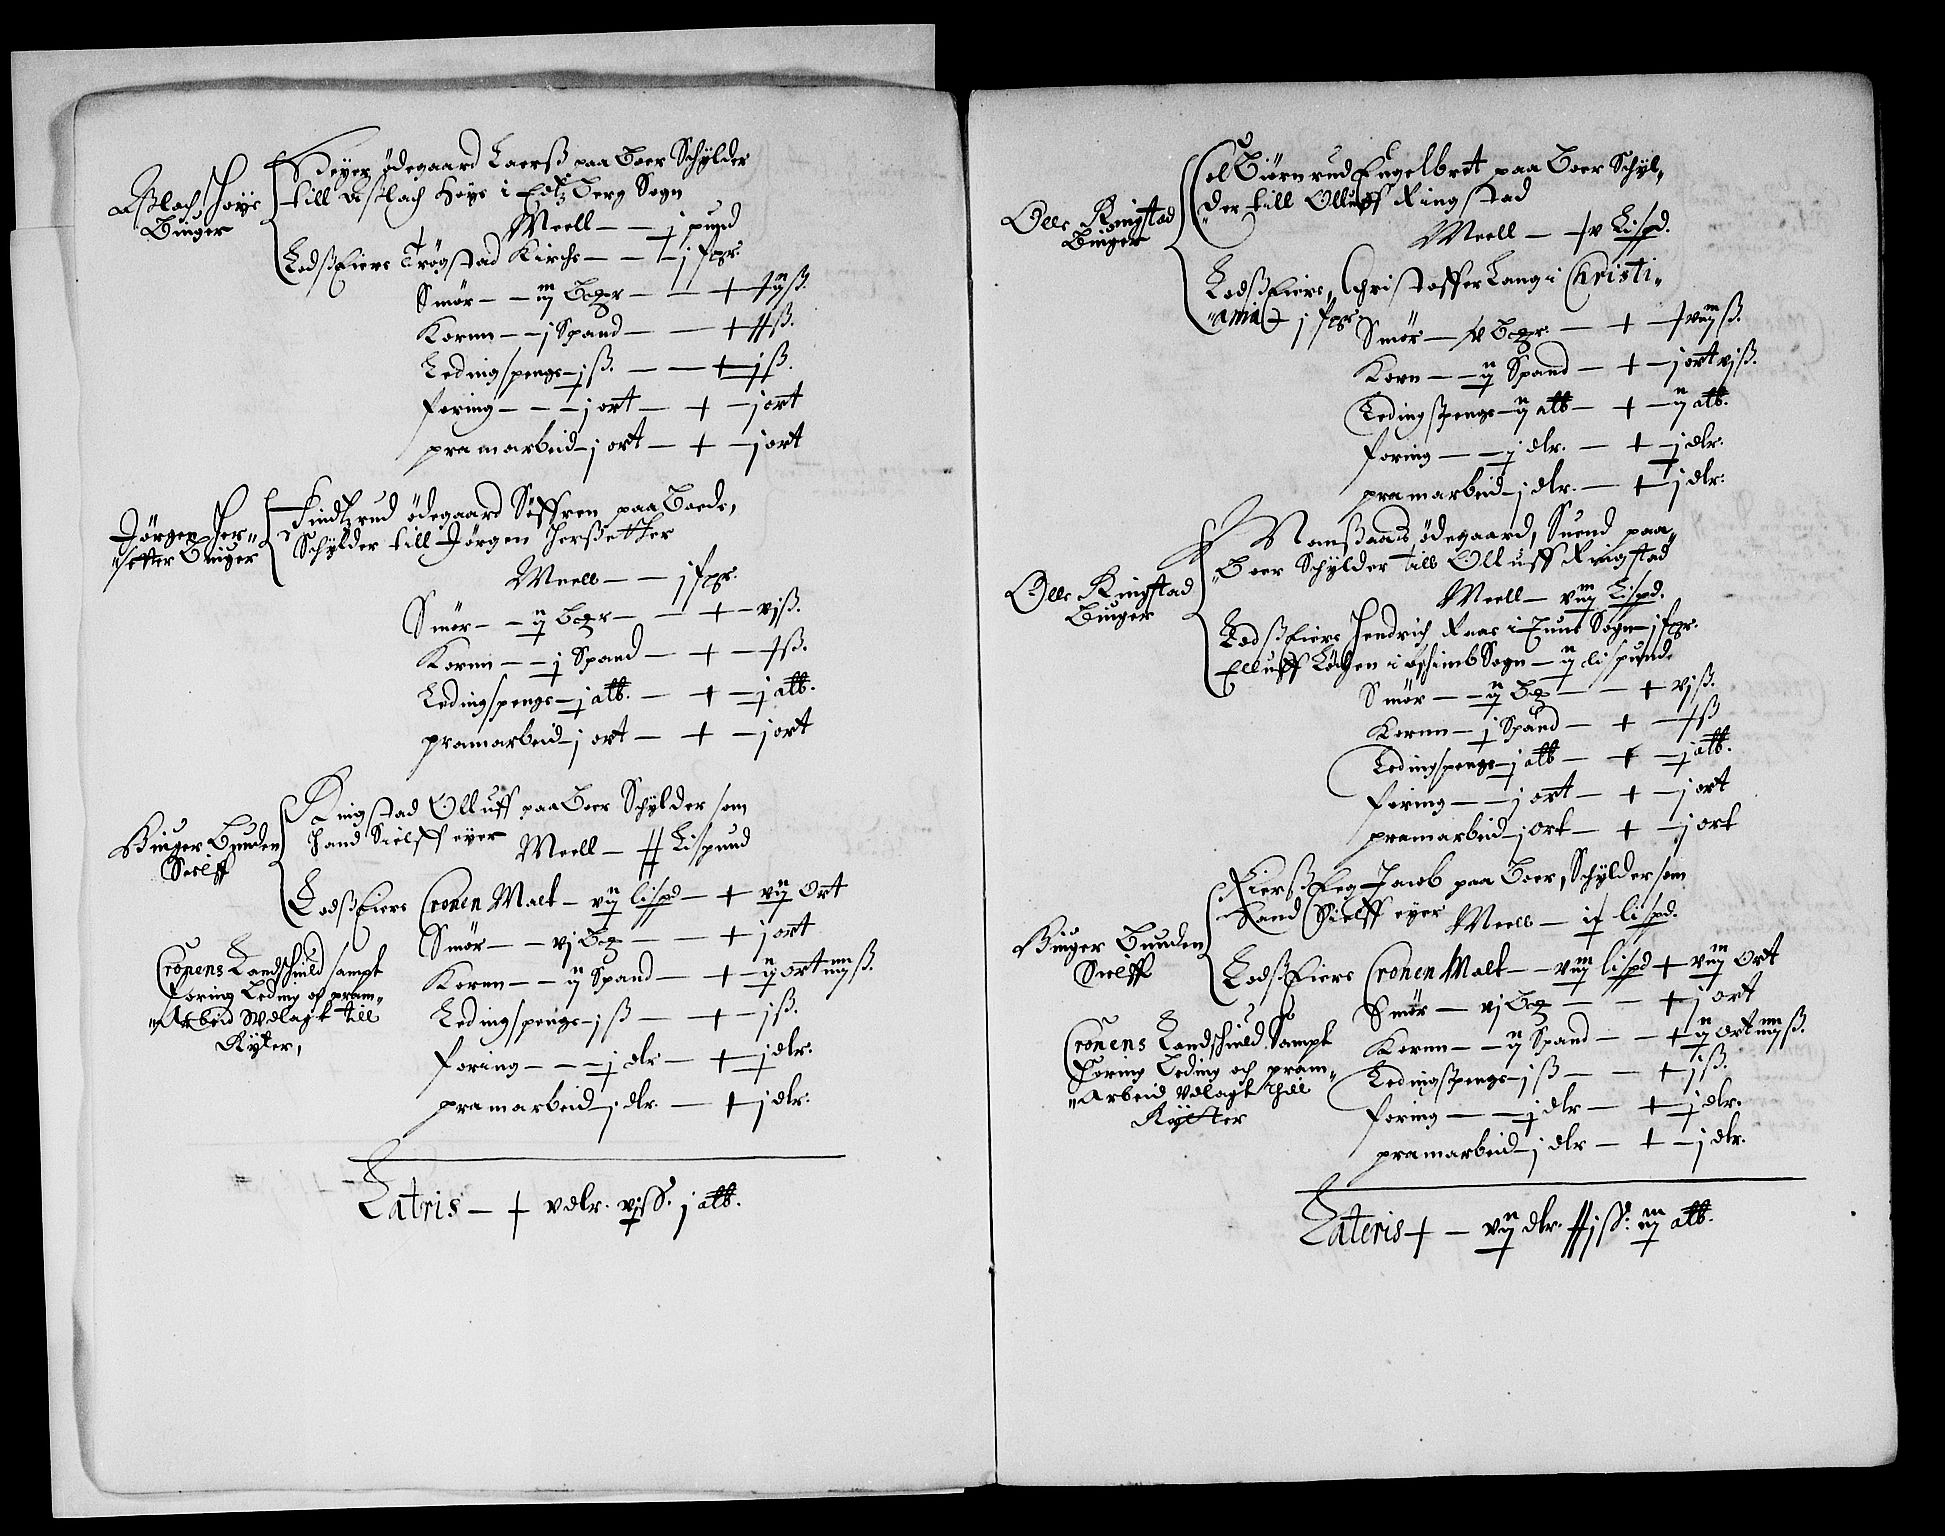 Aslach Høye
Binger
Heyer ødegaard Laerß paa Boer Schylder
till Aslach Høye i Edtzberg Sogn
Meell — j pund
LodßEiere Trøgstad Kirche — j
Smør — iij
Kornn — j Spand — + ß.
Ledingspenge j ß. — + j ß.
foring — j ort — + — j ort
pramarbeid j ort — + — j ort
Jørgen Her-
setter Binger
ødegaard Søffren paa Boede,
Schylder till Jørgen Herßetter
Meell — j
Smør — ij — + — vj ß.
Kornn — j Spand — + — ß.
Ledingspenge j alb. — + — j alb.
pramarbeid j ort — + — j ort
Binger Bunden
Sielff
Ringstad Olluff paa Boer Schylder som
hand Sielff eyer
Meell — Lispund
LodßEiere Cronen Malt — vij lispd — + vij Ort
Smør — vj — + j ort
Kornn — ij Spand — + — ij ort iiij ß.
Ledingspenge j ß — + — j ß.
foring — j dlr — + — j dlr.
pramarbeid j dlr. — + j dlr:
Cronens Landschuld sampt
foring Leding och pram-
Arbeid Udlagt till
Rytter,
Latris — + v dlr. j alb.
Olle Ringstad
Binger
Biørnrud Engelbret paa Boer Schyl,
der till Olluff Ringstad
Meell — Lispd.
LodßEiere, Christoffer Lang i Christi-
ania j
Smør — + —
Korn — ij Spand — + — j ort vj ß.
Ledingspenge ij alb — + — ij alb.
foring — j dlr. — + — j dlr:
pramarbeid j dlr. — + j dlr:
Olle Ringstad
Binger
ødegaard, Suend paa
Boer Schylder till Olluff Ringstad
Meell — viij Lispd.
LodßEiere Hendrich Raae i Sogn j
Elluff i Sogn — ij lispund
Smør — ij — + vj ß.
Kornn — j Spand — + — ß
Ledingspenge j alb — + — j alb.
foring — j ort — + — j ort
pramarbeid j ort — + — j ort
Binger Bunden
Sielff
Jacob paa Boer, Schylder som
Hand Sielff eyer Meell — lispd.
LodßEiere Cronen Malt — viij lispd + viij Ort
Smør — vj — + j ort
Kornn — ij Spand — + ij Ort iiij ß.
Ledingspenge j ß — + j ß.
foring — j dlr — + — j dlr.
pramarbeid j dlr — + — j dlr.
Cronens Landschuld Sampt
Foring Leding och pram-
Arbeid Udlagt thill
Rytter
Lateris + — vij dlr. iij alb.